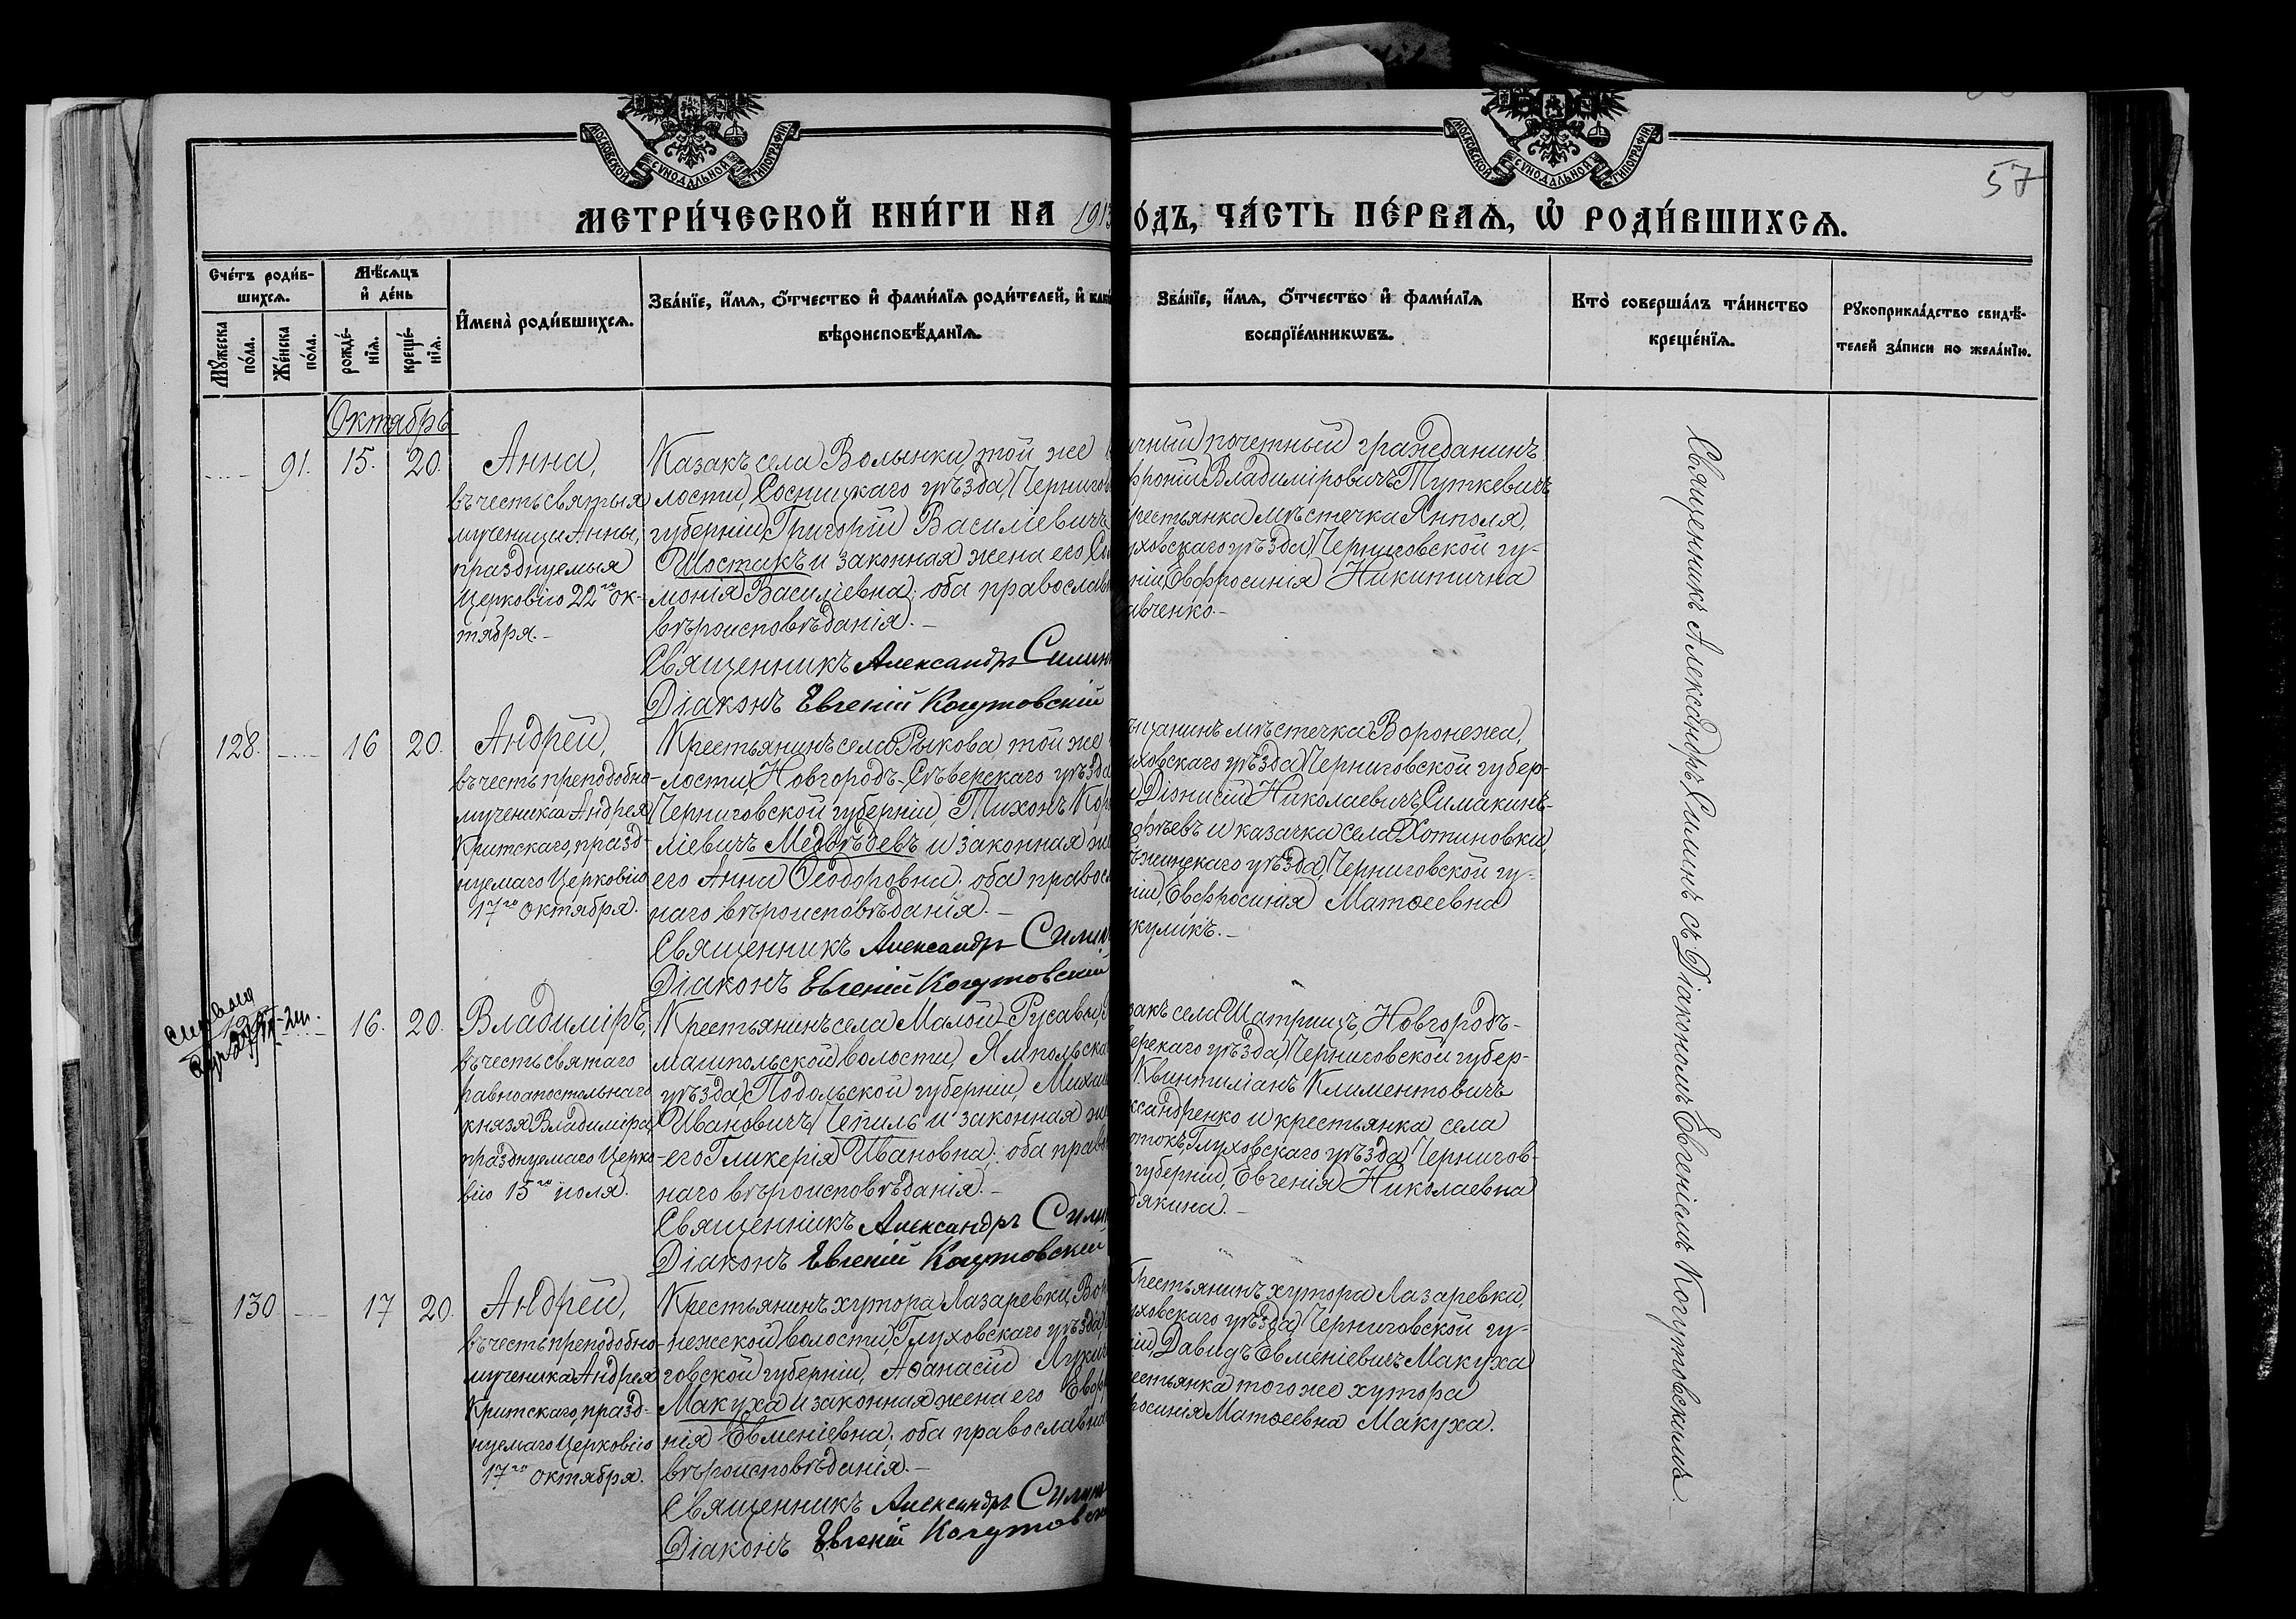 МОСКОВСКОЙ СѴНОДАЛЬНОЙ ТИПОГРАФІИ
МОСКОВСКОЙ СѴНОДАЛЬНОЙ ТИПОГРАФІИ
57
МЕТРИ́ЧЕСКОЙ КНИ́ГИ НА 1913
О́ДЪ, ЧА́СТЬ ПЕ́РВАѦ, Ѡ҆ РОДИ́ВШИХСѦ.
Сче́тъ роди́в-
шихсѧ.
Мꙋ́жеска
по́ла.
Же́нска
по́ла.
Мѣ́сѧцъ
и҆ де́нь
рожде́-
нїѧ.
креще́-
нїѧ.
И҆мена̀ роди́вшихсѧ.
Зва́нїе, и҆́мѧ, ѻ҆́тчество и҆ фами́лїѧ роди́телей, и҆ как
вѣроисповѣ́данїѧ.
Зва́нїе, и҆́мѧ, ѻ҆́тчество и҆ фами́лїѧ
воспрїе́мникѡвъ.
Кто̀ соверша́лъ та́инство
креще́нїѧ.
Рꙋкоприкла́дство свидѣ́-
телей за́писи по жела́нїю.
Октябрь
91. 15. 20.
Анна,
въ честь святыя
мученицы Анны,
празднуемыя
Церковію 22го ок-
тября.-
Казакъ села Волынки, той же
лости, Сосницкаго уѣзда, Чернигов
губерніи, Григорій Василіевичъ
Шостакъ и законная жена его, Со
монія Василіевна; оба православн
вѣроисповѣданія.-
Священникъ Александръ Силин
Діаконъ Евгеній Когутовскій
ичный почетный гражданинъ
фроній Владиміровичъ Туткевичъ
рестьянка мѣстечка Янполя,
уховскаго уѣзда, Черниговской гу-
ніи, Евфросинія Никитична
авченко.-
128. 16 20.
Андрей,
въ честь преподобно-
мученика Андрея
Критскаго, празд-
нуемаго Церковію
17го октября.
Крестьянинъ села Рыкова, той же
лости, Новгородъ-Сѣверскаго уѣзда
Черниговской губерніи, Тихонъ Кор
ліевичъ Медвѣдевъ и законная же
его Анна Ѳеодоровна; оба правосл
наго вѣроисповѣданія.-
Священникъ Александръ Силин
Діаконъ Евгеній Когутовскій
ѣщанинъ мѣстечка Воронежа,
уховскаго уѣзда, Черниговской губер-
Діонисій Николаевичъ Симакинъ-
фѣевъ и казачка села Хотиновки,
ѣжинскаго уѣзда, Черниговской гу-
ніи, Евфросинія Матѳеевна
куликъ.-
16. 20.
Владиміръ,
въ честь святаго
равноапостольнаго
князя Владиміра,
празднуемаго Церко-
вію 15го іюля.
Крестьянинъ села Малой-Русавы,
машпольской волости, Ямпольска
уѣзда, Подольской губерніи, Миха
Ивановичъ Чепиль и законная же
его Гликерія Ивановна; оба правос
наго вѣроисповѣданія.-
Священникъ Александръ Силин
Діаконъ Евгеній Когутовскій
закъ села Шатрищъ, Новгородъ-
верскаго уѣзда, Черниговской губер-
Квинтиліанъ Климентовичъ
ксандренко и крестьянка села
отокъ, Глуховскаго уѣзда, Чернигов-
губерніи, Евгенія Николаевна
дякина.-
130 17 20.
Андрей,
въ честь преподобно-
мученика Андрея
Критскаго, празд-
нуемаго Церковію
17го октября.
Крестьянинъ хутора Лазаревки, Вор
нежской волости, Глуховскаго уѣзда,
говской губерніи, Аѳанасій Лукич
Макуха и законная жена его Евфр
нія Евменіевна; оба православна
вѣроисповѣданія.-
Священникъ Александръ Силин
Діаконъ Евгеній Когутовск
рестьянинъ хутора Лазаревка,
уховскаго уѣзда, Черниговской гу-
ніи, Давидъ Евменіевичъ Макуха
естьянка того же хутора
росинія Матѳеевна Макуха.
Священникъ Александръ Силинъ съ Діакономъ Евгеніемъ Когутовскимъ.